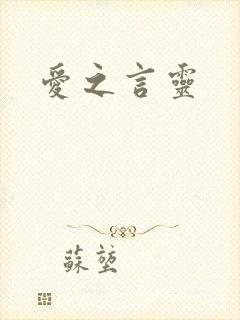 愛之言靈
蘇堃